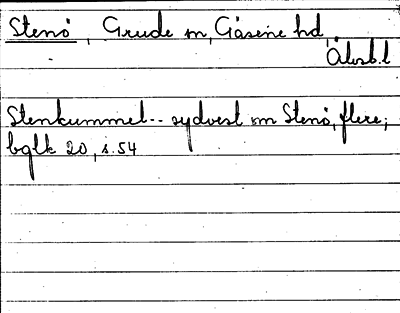 Stenö, Grude sn, Gäsene hd,
Älvsb.l
Stenkummel-- sydvest om Stenö, flere;
bglk 20, s. 54